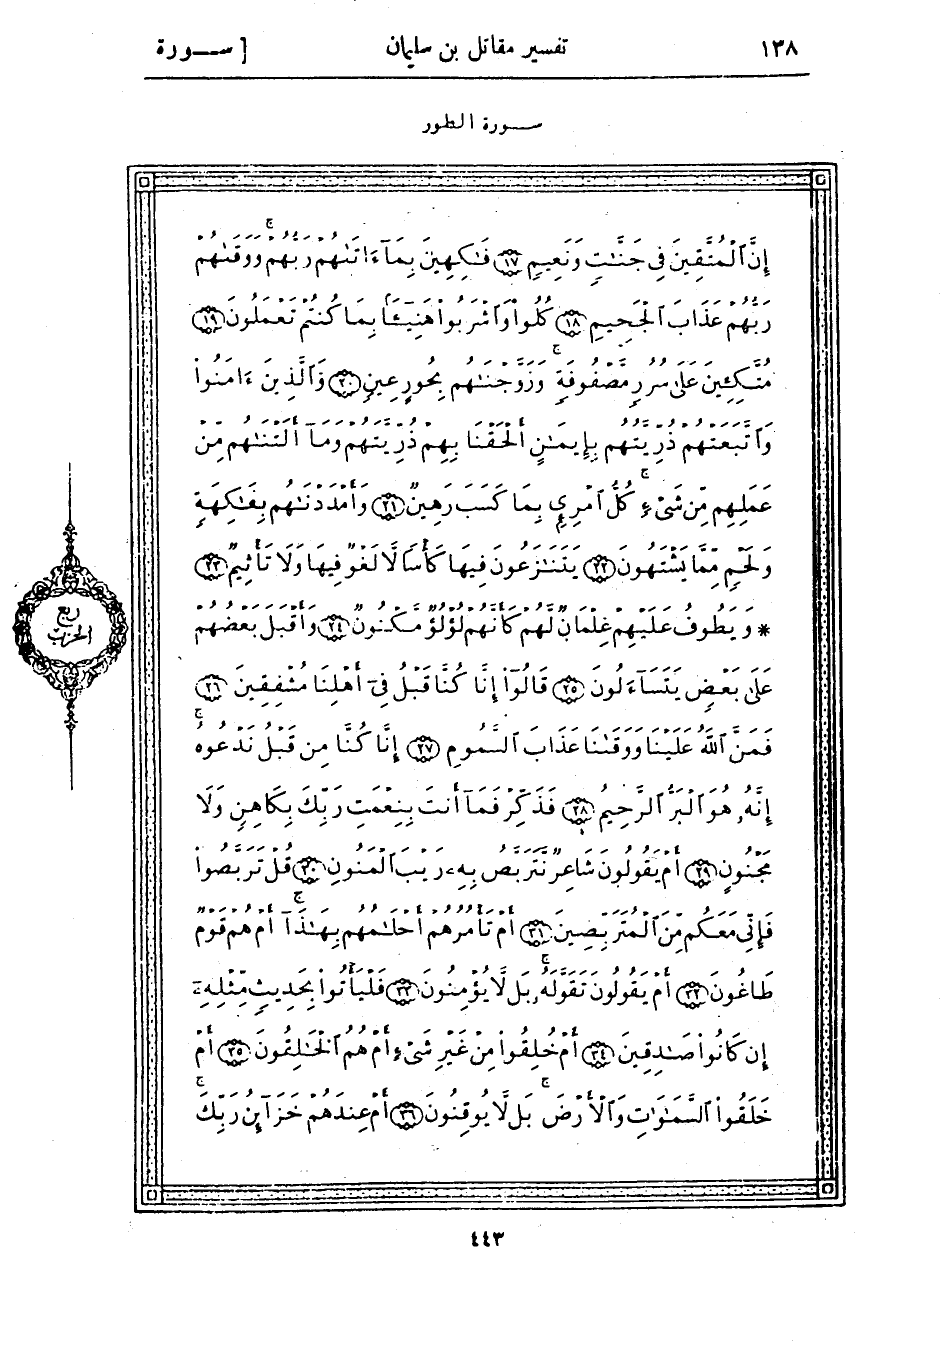 ١٣٨ تفسير مقاتل بن سليمان [ ســورة
ســورة الطور
إِنَّ ٱلْمُتَّقِينَ فِي جَنَّـٰتٍ وَنَعِيمٍ ١٧ فَـٰكِهِينَ بِمَآ ءَاتَىٰهُمْ رَبُّهُمْ وَوَقَىٰهُمْ
رَبُّهُمْ عَذَابَ ٱلْجَحِيمِ ١٨ كُلُوا۟ وَٱشْرَبُوا۟ هَنِيٓـًٔا بِمَا كُنتُمْ تَعْمَلُونَ ١٩
مُتَّكِـِٔينَ عَلَىٰ سُرُرٍ مَّصْفُوفَةٍ ۖ وَزَوَّجْنَـٰهُم بِحُورٍ عِينٍ ٢٠ وَٱلَّذِينَ ءَامَنُوا۟
وَٱتَّبَعَتْهُمْ ذُرِّيَّتُهُم بِإِيمَـٰنٍ أَلْحَقْنَا بِهِمْ ذُرِّيَّتَهُمْ وَمَآ أَلَتْنَـٰهُم مِّنْ
عَمَلِهِم مِّن شَىْءٍ ۚ كُلُّ ٱمْرِئٍ بِمَا كَسَبَ رَهِينٌ ٢١ وَأَمْدَدْنَـٰهُم بِفَـٰكِهَةٍ
وَلَحْمٍ مِّمَّا يَشْتَهُونَ ٢٢ يَتَنَـٰزَعُونَ فِيهَا كَأْسًا لَّا لَغْوٌ فِيهَا وَلَا تَأْثِيمٌ ٢٣
* وَيَطُوفُ عَلَيْهِمْ غِلْمَانٌ لَّهُمْ كَأَنَّهُمْ لُؤْلُؤٌ مَّكْنُونٌ ٢٤ وَأَقْبَلَ بَعْضُهُمْ
عَلَىٰ بَعْضٍ يَتَسَآءَلُونَ ٢٥ قَالُوٓا۟ إِنَّا كُنَّا قَبْلُ فِىٓ أَهْلِنَا مُشْفِقِينَ ٢٦
فَمَنَّ ٱللَّهُ عَلَيْنَا وَوَقَىٰنَا عَذَابَ ٱلسَّمُومِ ٢٧ إِنَّا كُنَّا مِن قَبْلُ نَدْعُوهُ ۖ
إِنَّهُۥ هُوَ ٱلْبَرُّ ٱلرَّحِيمُ ٢٨ فَذَكِّرْ فَمَآ أَنتَ بِنِعْمَتِ رَبِّكَ بِكَاهِنٍ وَلَا
مَجْنُونٍ ٢٩ أَمْ يَقُولُونَ شَاعِرٌ نَّتَرَبَّصُ بِهِۦ رَيْبَ ٱلْمَنُونِ ٣٠ قُلْ تَرَبَّصُوا۟
فَإِنِّى مَعَكُم مِّنَ ٱلْمُتَرَبِّصِينَ ٣١ أَمْ تَأْمُرُهُمْ أَحْلَـٰمُهُم بِهَـٰذَآ ۚ أَمْ هُمْ قَوْمٌ
طَاغُونَ ٣٢ أَمْ يَقُولُونَ تَقَوَّلَهُۥ ۚ بَل لَّا يُؤْمِنُونَ ٣٣ فَلْيَأْتُوا۟ بِحَدِيثٍ مِّثْلِهِۦٓ
إِن كَانُوا۟ صَـٰدِقِينَ ٣٤ أَمْ خُلِقُوا۟ مِنْ غَيْرِ شَىْءٍ أَمْ هُمُ ٱلْخَـٰلِقُونَ ٣٥ أَمْ
خَلَقُوا۟ ٱلسَّمَـٰوَٰتِ وَٱلْأَرْضَ ۚ بَل لَّا يُوقِنُونَ ٣٦ أَمْ عِندَهُمْ خَزَآئِنُ رَبِّكَ
ربع
الحزب
٤٤٣